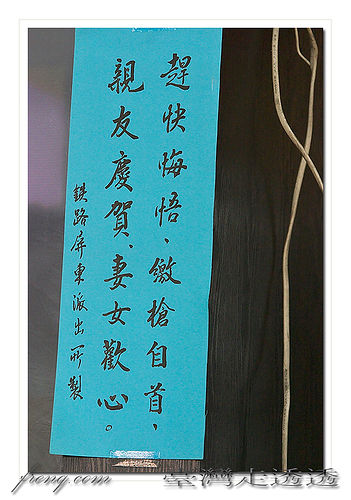 趕快悔悟、繳槍自首，
親友慶賀、妻女歡心。
鐵路屏東派出所製
peng.com 臺灣走透透